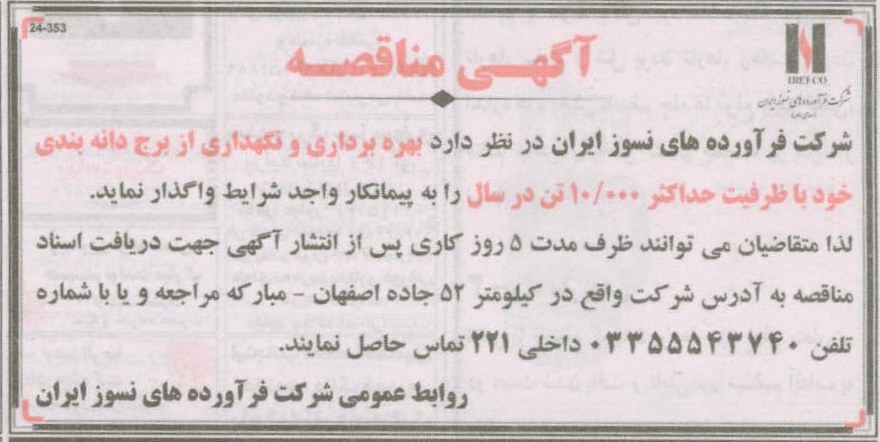 24-353
آگهی مناقصه
IREFCO
شرکت فرآورده‌های نسوز ایران
شرکت فرآورده های نسوز ایران در نظر دارد بهره برداری و نگهداری از برج دانه بندی
خود با ظرفیت حداکثر ۱۰/۰۰۰ تن در سال را به پیمانکار واجد شرایط واگذار نماید.
لذا متقاضیان می توانند ظرف مدت ۵ روز کاری پس از انتشار آگهی جهت دریافت اسناد
مناقصه به آدرس شرکت واقع در کیلومتر ۵۲ جاده اصفهان - مبارکه مراجعه و یا با شماره
تلفن ۰۳۳۵۵۵۴۳۷۴۰ داخلی ۲۲۱ تماس حاصل نمایند.
روابط عمومی شرکت فرآورده های نسوز ایران